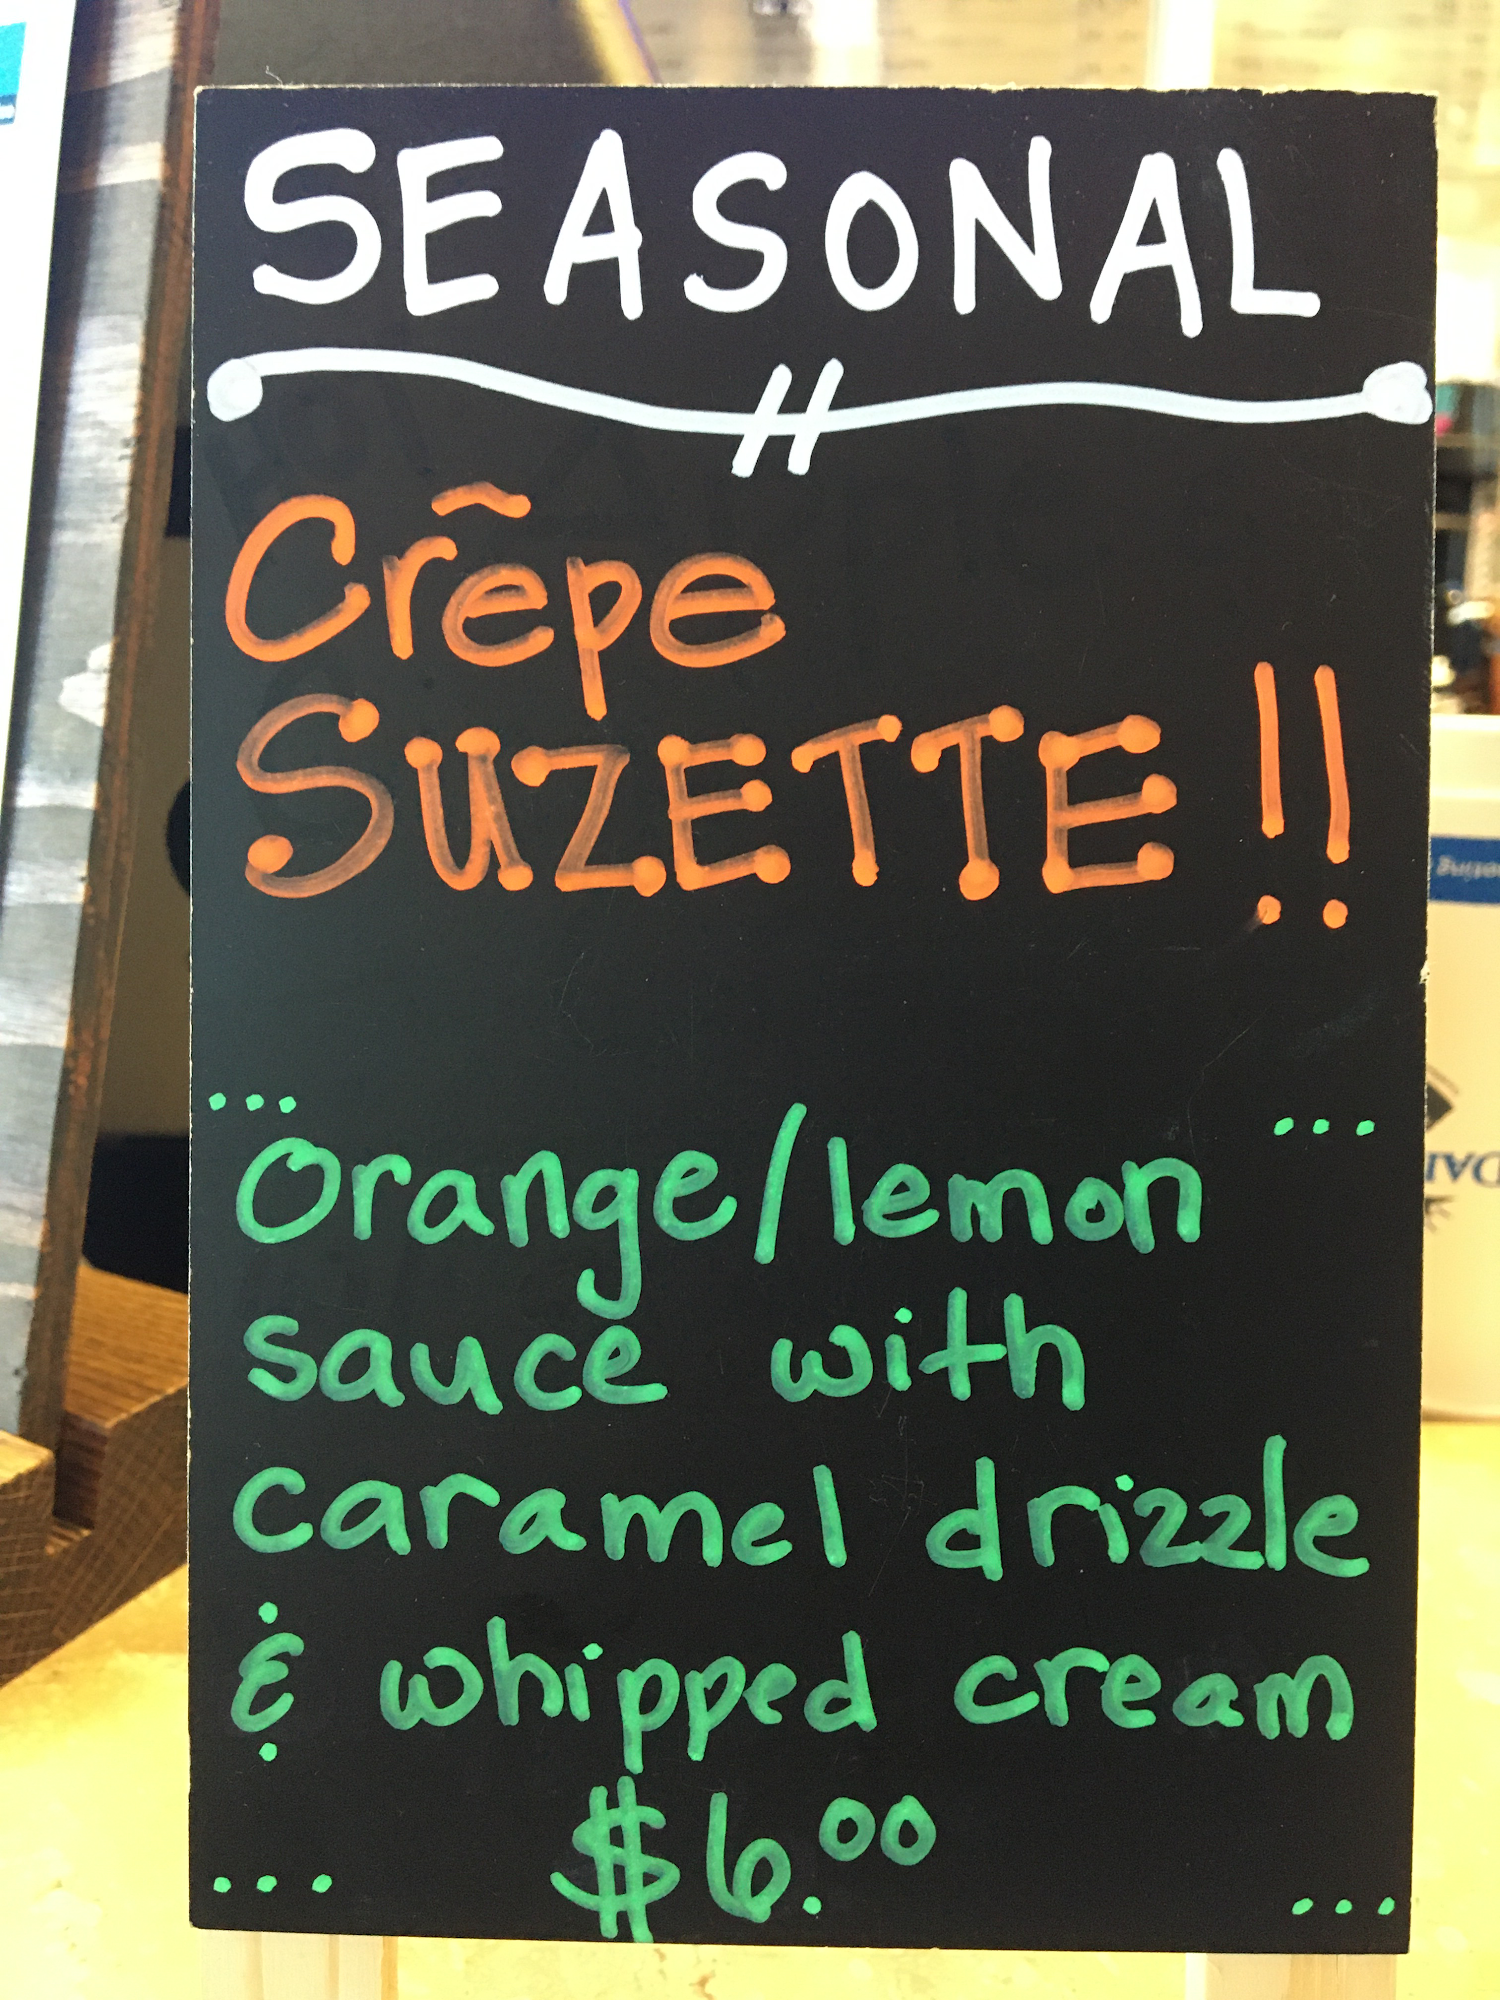 SEASONAL
Crêpe
SUZETTE!!
Orange/lemon
sauce with
caramel drizzle
& whipped cream
$6.00